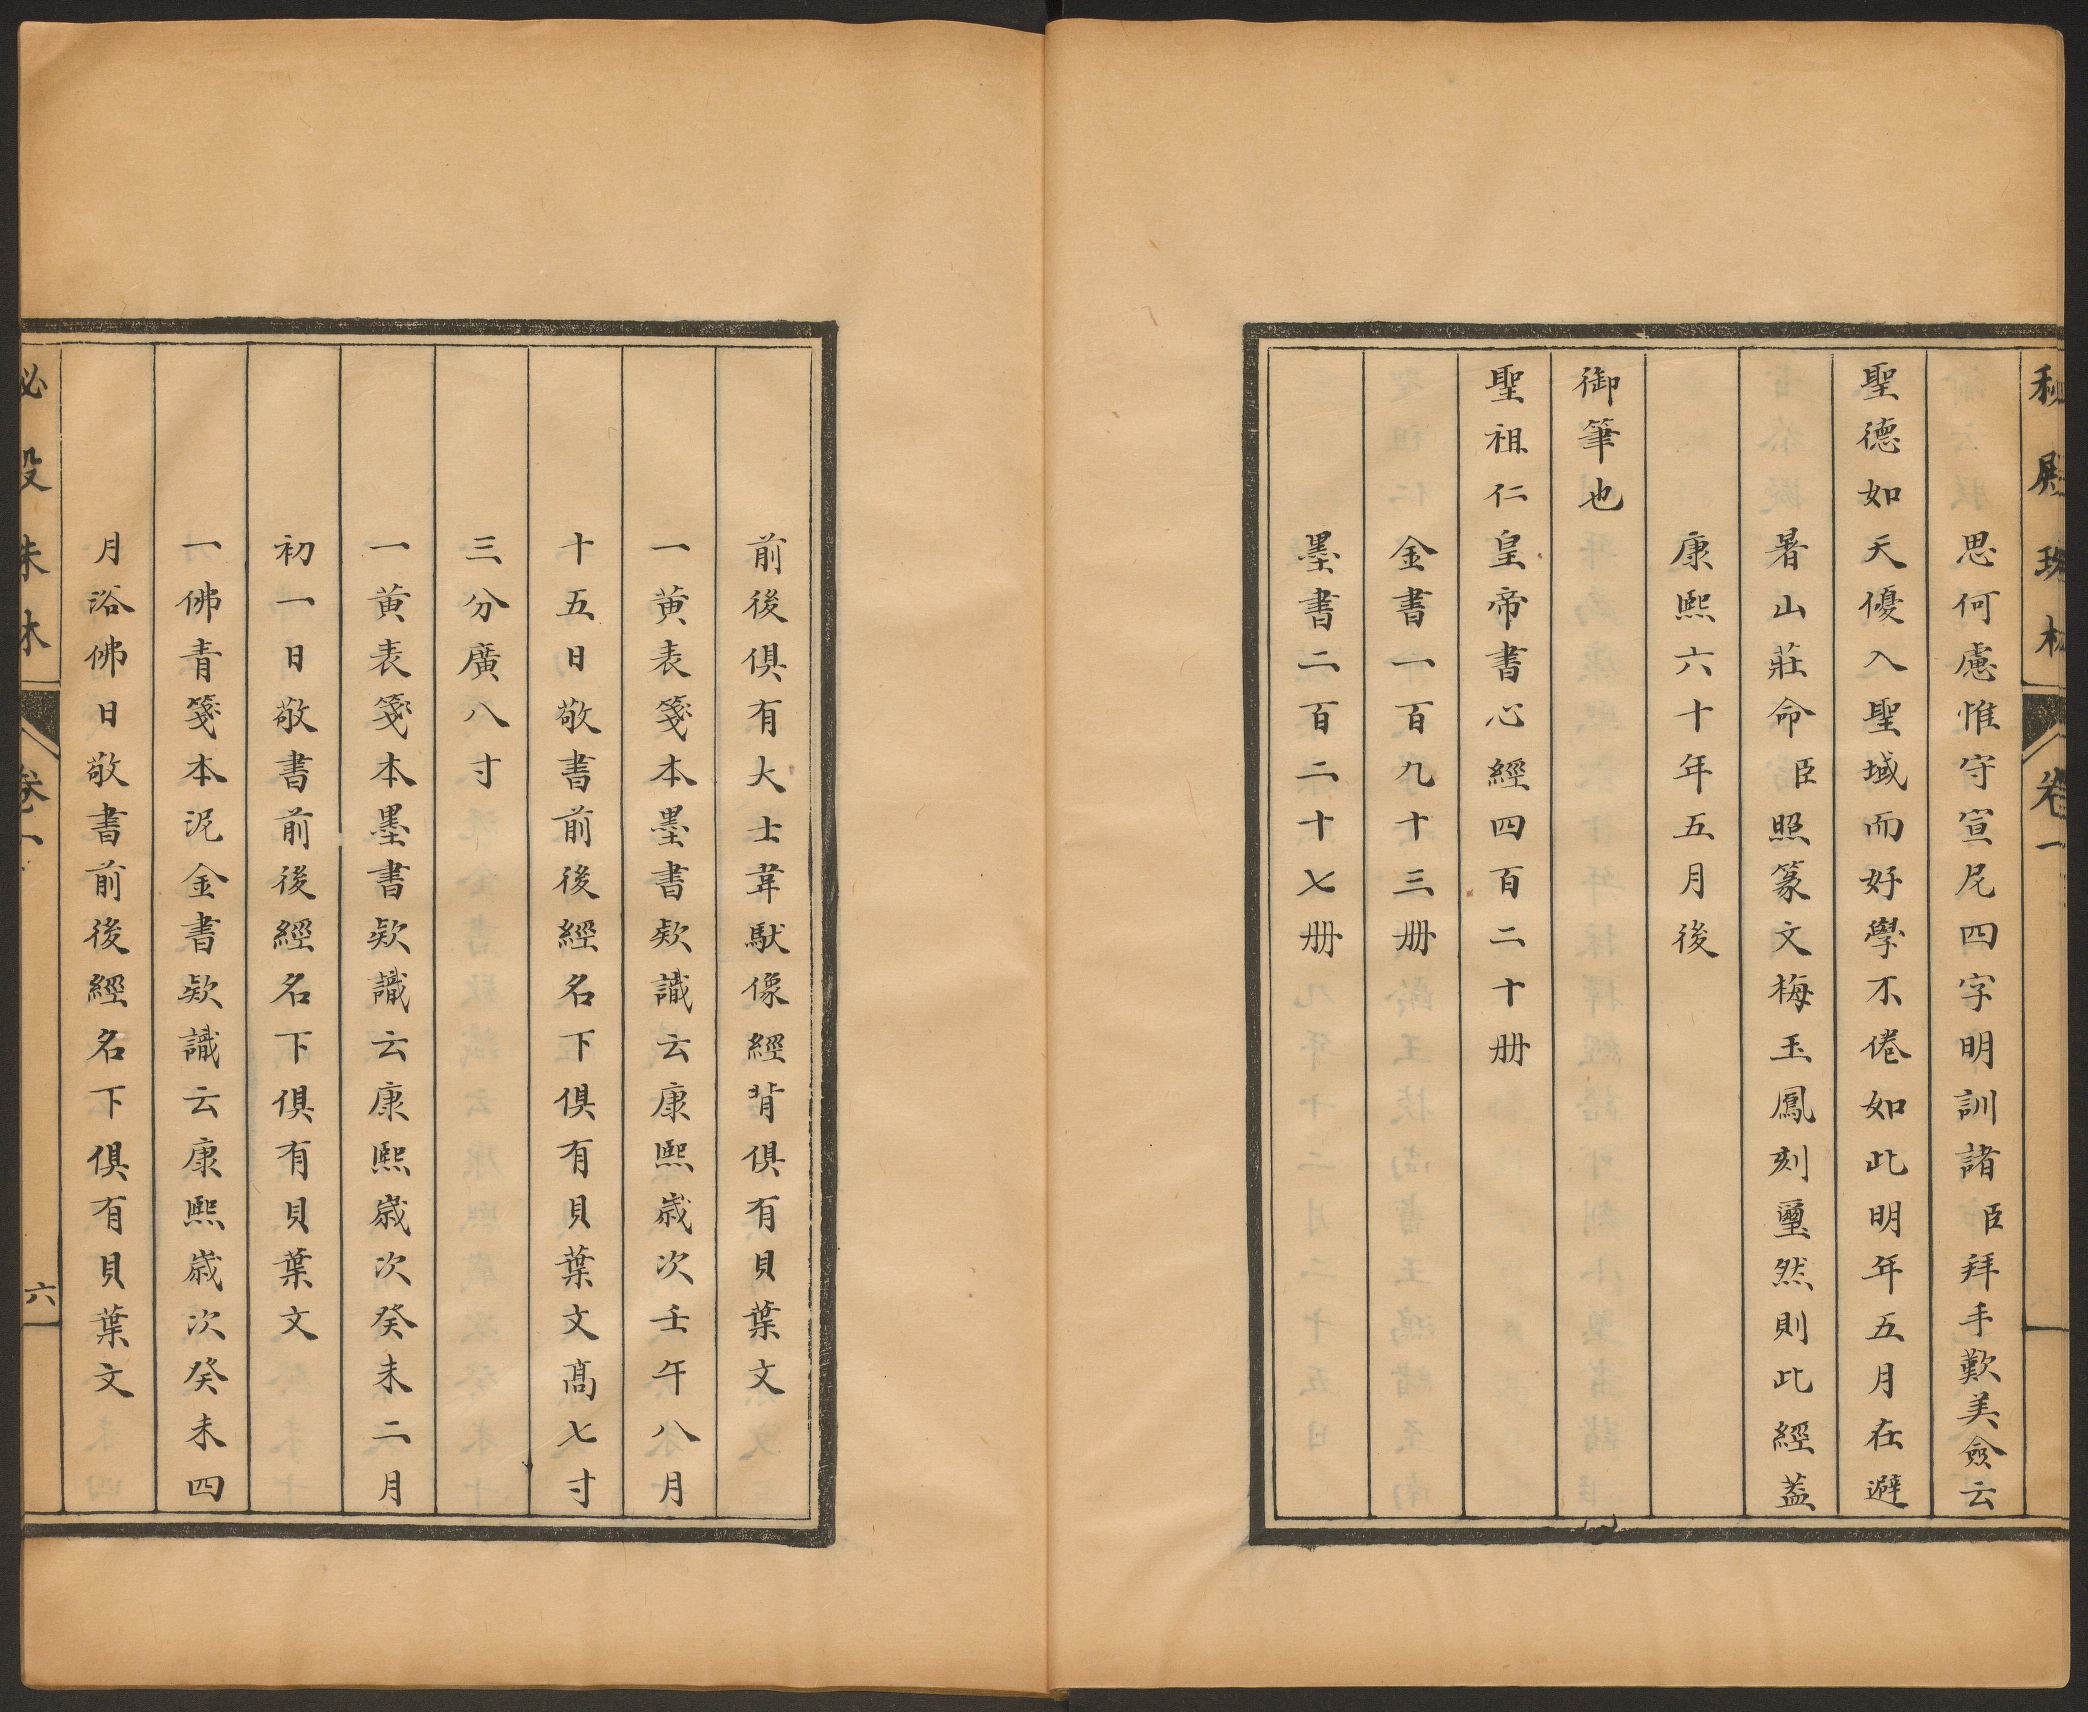 秘殿珠林 卷一
思何慮惟守宣尼四字明訓諸臣拜手歎美僉云
聖德如天優入聖域而好學不倦如此明年五月在避
暑山莊命臣照篆文梅玉鳳刻璽然則此經蓋
康熙六十年五月後
御筆也
聖祖仁皇帝書心經四百二十册
金書一百九十三册
墨書二百二十七册
前後俱有大士韋馱像經背俱有貝葉文
一黄表箋本墨書欵識云康熙歲次壬午八月
十五日敬書前後經名下俱有貝葉文高七寸
三分廣八寸
一黄表箋本墨書欵識云康熙歲次癸未二月
初一日敬書前後經名下俱有貝葉文
一佛青箋本泥金書欵識云康熙歲次癸未四
月浴佛日敬書前後經名下俱有貝葉文
秘殿珠林 卷一 六